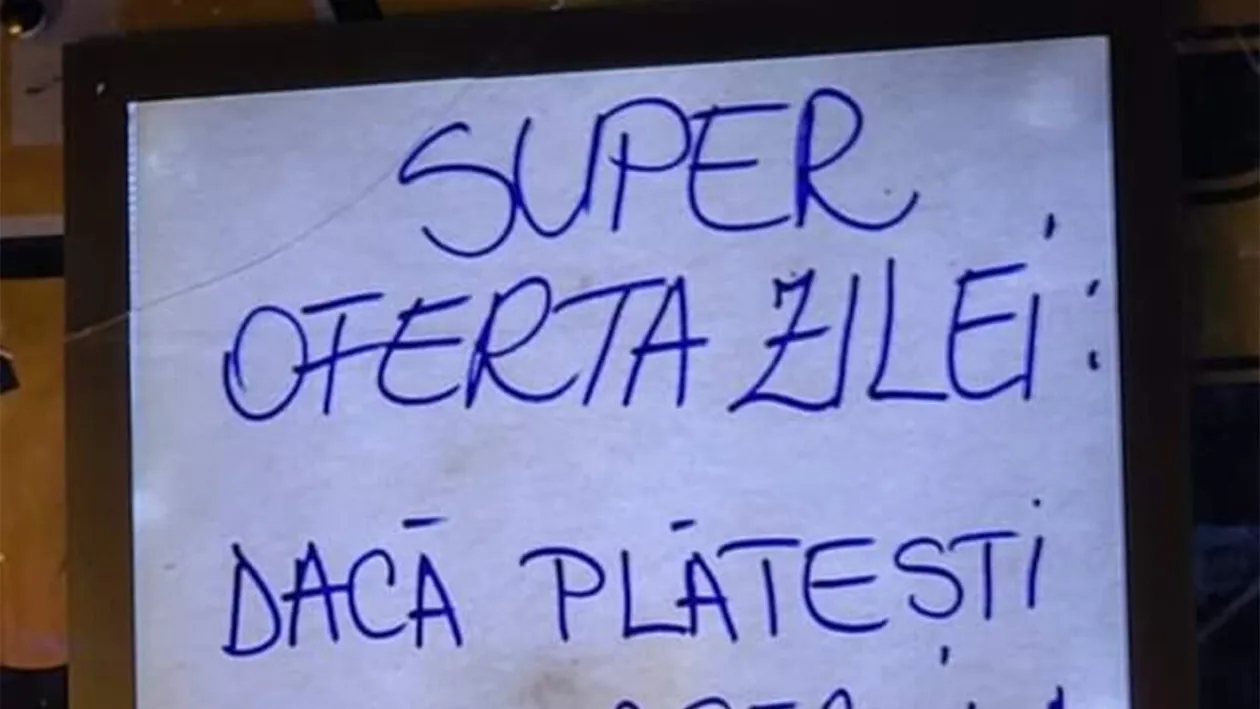 SUPER
OFERTA ZILEI:
DACĂ PLĂTEȘTI